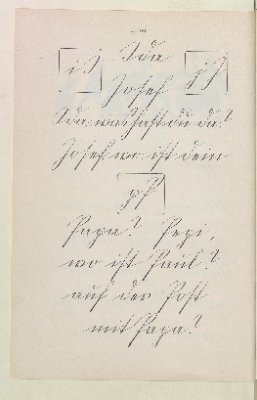 Ida
iS Josef jS
Ida, was hast du da?
Josef, wo ist dein
pf
Papa? Pepi,
wo ist Paul?
auf der Post
mit Papa?